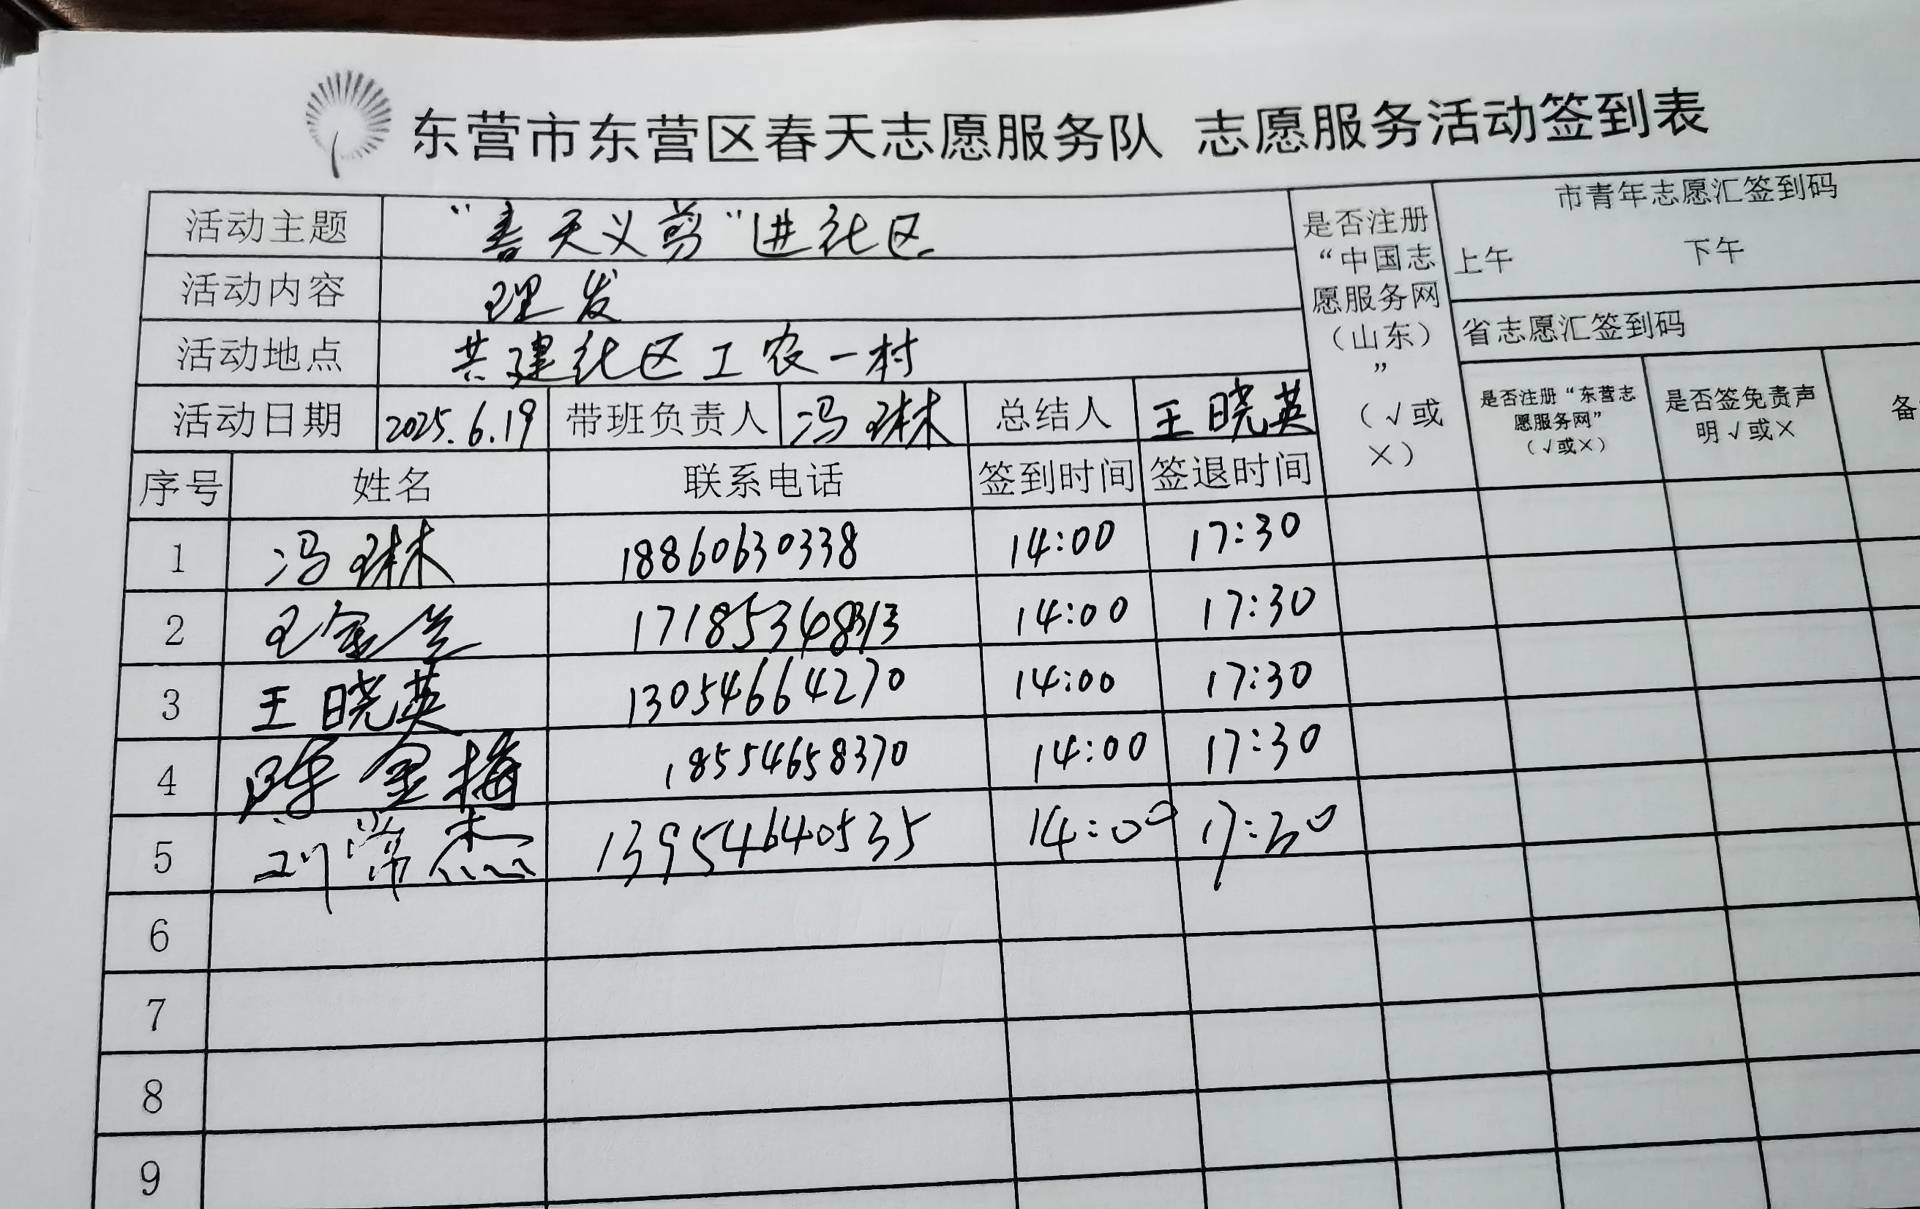 东营市东营区春天志愿服务队 志愿服务活动签到表
活动主题 “春天义剪”进社区
活动内容 理发
活动地点 共建社区工农一村
活动日期 2025.6.19 带班负责人 冯琳 总结人 王晓英
是否注册
“中国志
愿服务网
（山东）
”
（√或
×）
市青年志愿汇签到码
上午 下午
省志愿汇签到码
是否注册“东营志
愿服务网”
（√或×）
是否签免责声
明√或×
备
序号 姓名 联系电话 签到时间 签退时间
1 冯琳 18860630338 14:00 17:30
2 王金兰 17185348313 14:00 17:30
3 王晓英 13054664270 14:00 17:30
4 陈金梅 18554658370 14:00 17:30
5 刘常杰 13954640535 14:00 17:30
6
7
8
9